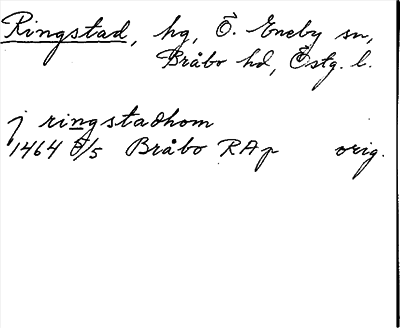 Ringstad, hg, Ö. Eneby sn,
Bråbo hd, Östg. l.
j ringstadhom
1464 8/5 Bråbo RAp orig.